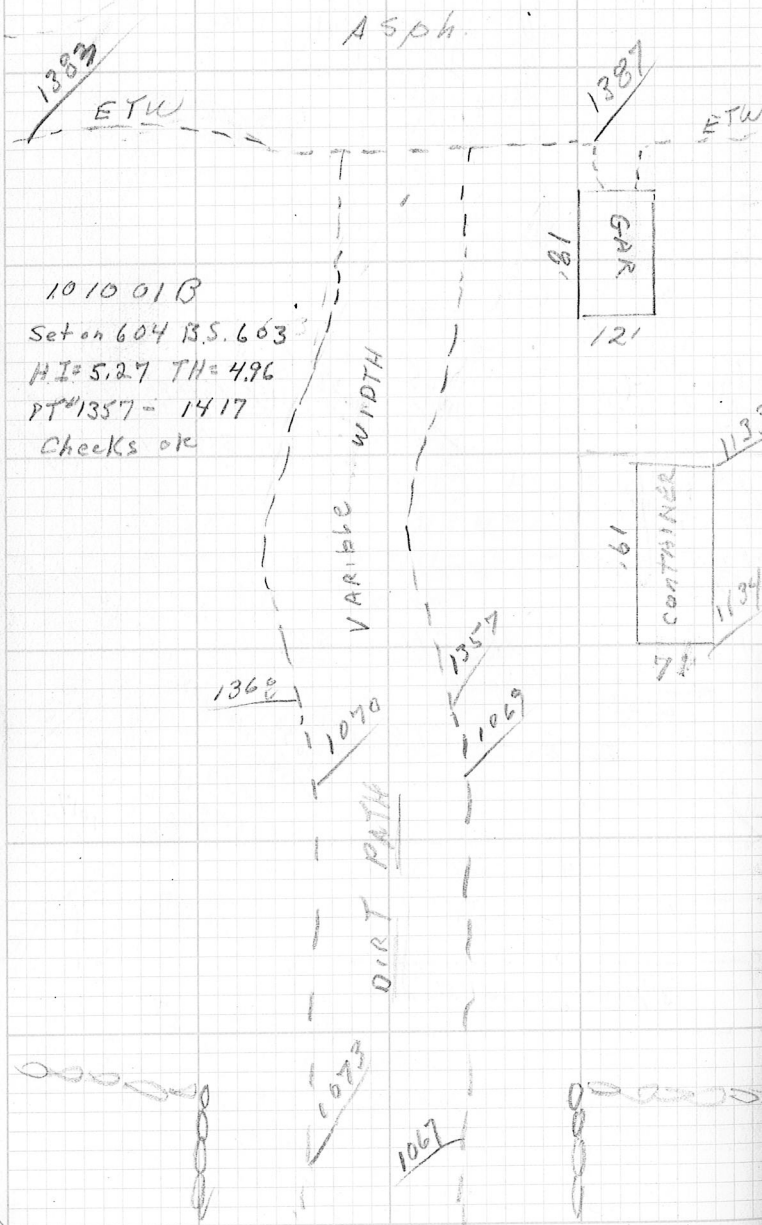 ASph.
ETW
1387
ETW
GAR
18'
12'
101001B
Set on 604 B.S. 603
HI= 5.27 TH= 4.96
PT#1357- 1417
Checks ok
VARIble WIDTH
CONTAINER
1357
1070
1069
DIRT PATH
1073
1067